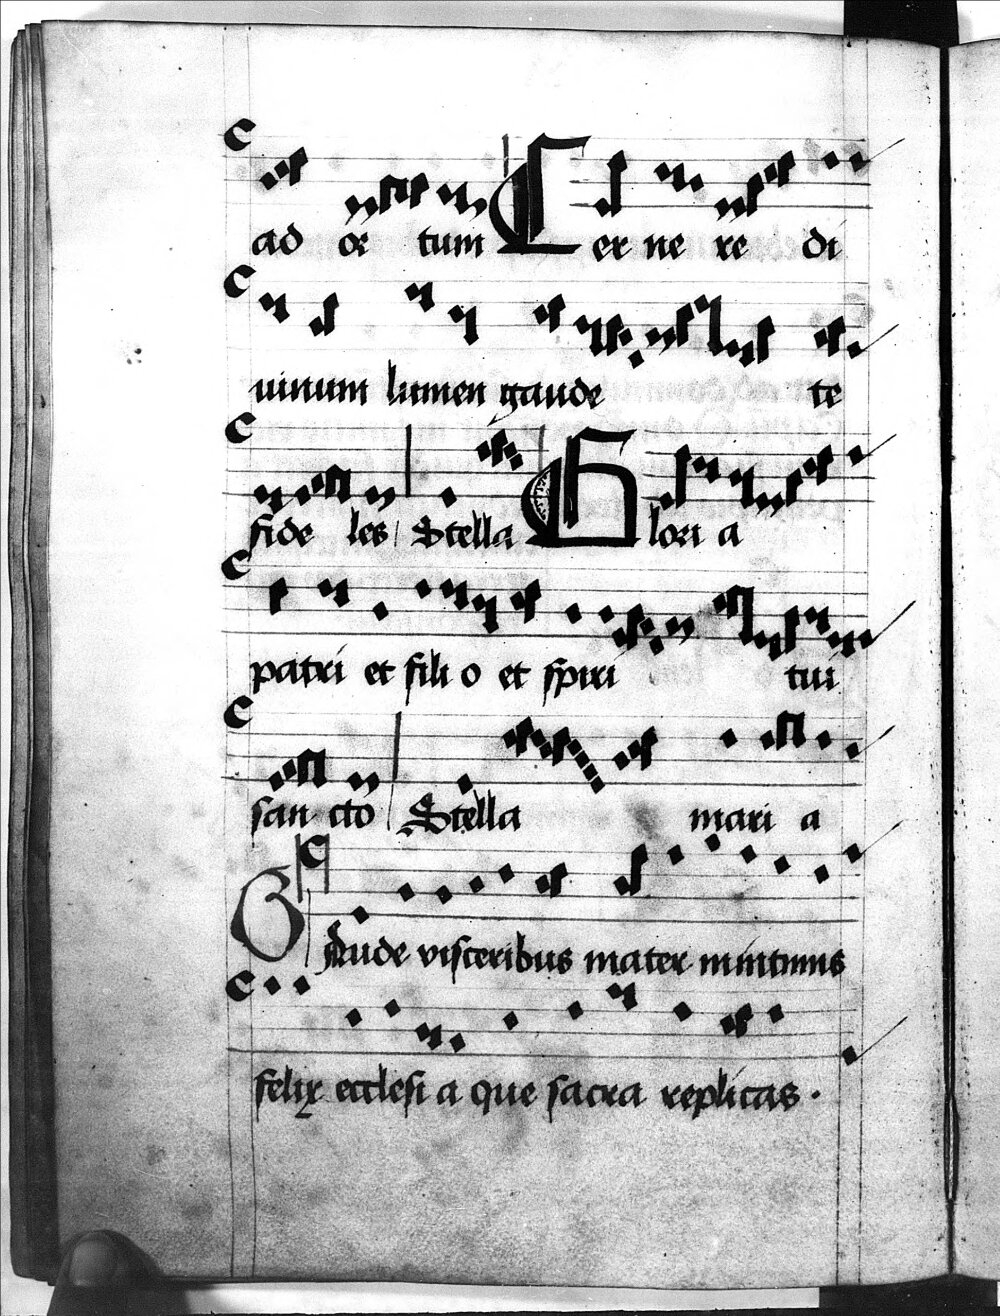 ad or tum Cer ne re di
uinum lumen gaude te
fide les Stella Glori a
patri et fili o et spiri tui
san cto Stella mari a
Gaude visceribus mater in intimis
felix ecclesi a que sacra replicas .